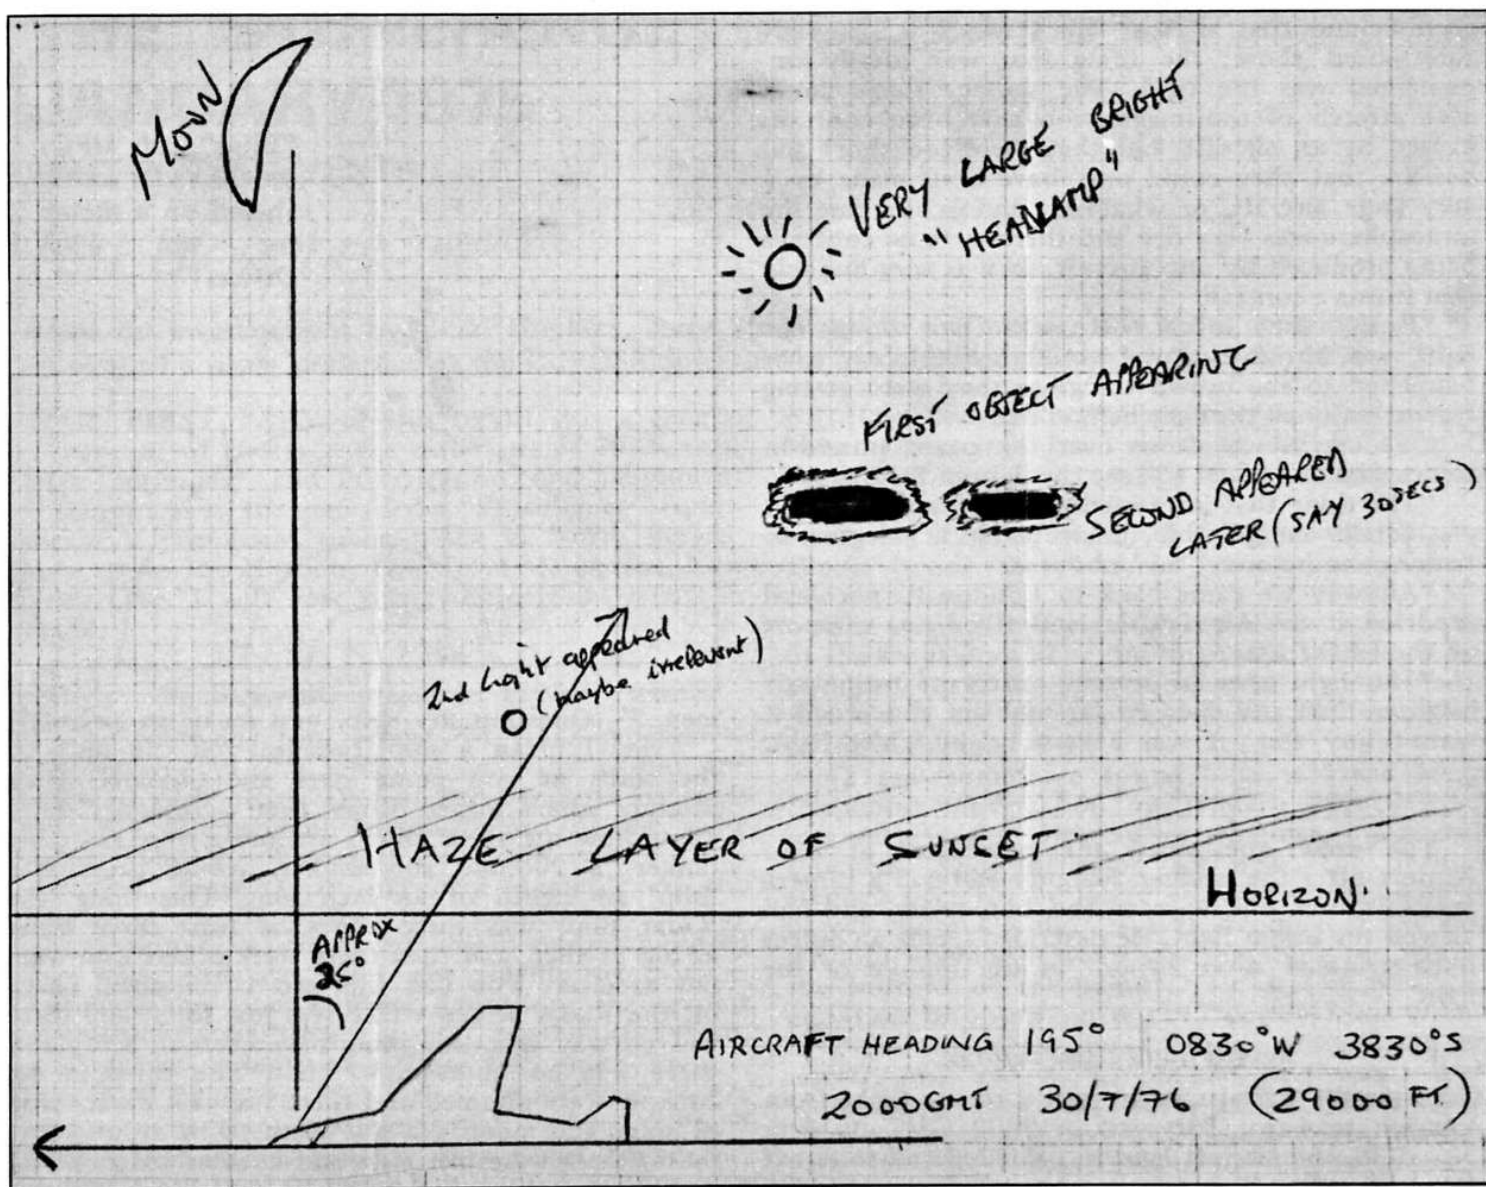 MOON
VERY LARGE BRIGHT
"HEADLAMP"
FIRST OBJECT APPEARING
SECOND APPEARED
LATER (SAY 30SECS)
2nd Light appeared
(maybe irrelevant)
HAZE LAYER OF SUNSET
HORIZON
APPROX
25°
AIRCRAFT HEADING 195° 0830°W 3830°S
2000GMT 30/7/76 (29000 FT)